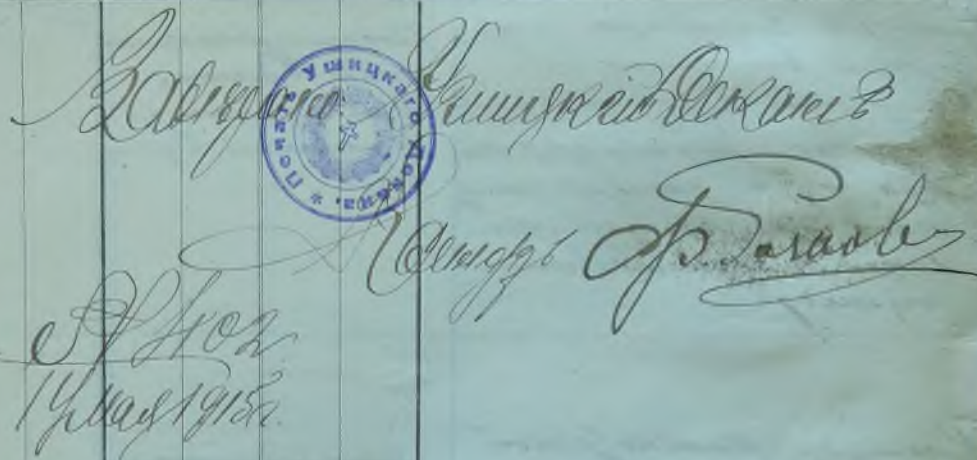 Ушицкій Деканъ
Печать Ушицкаго Декана. *
Ксендзъ Ф.
№ 402
мая 1915 г.